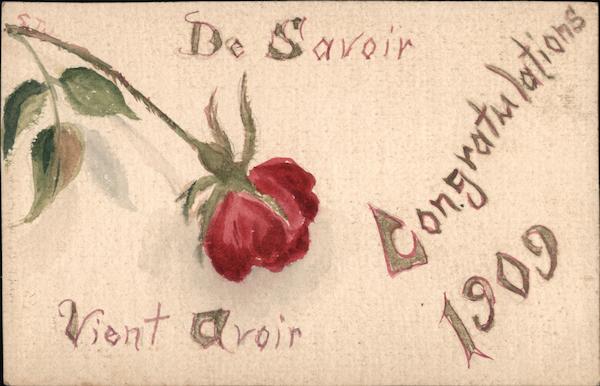 De Savoir
Vient Avoir
Congratulations
1909